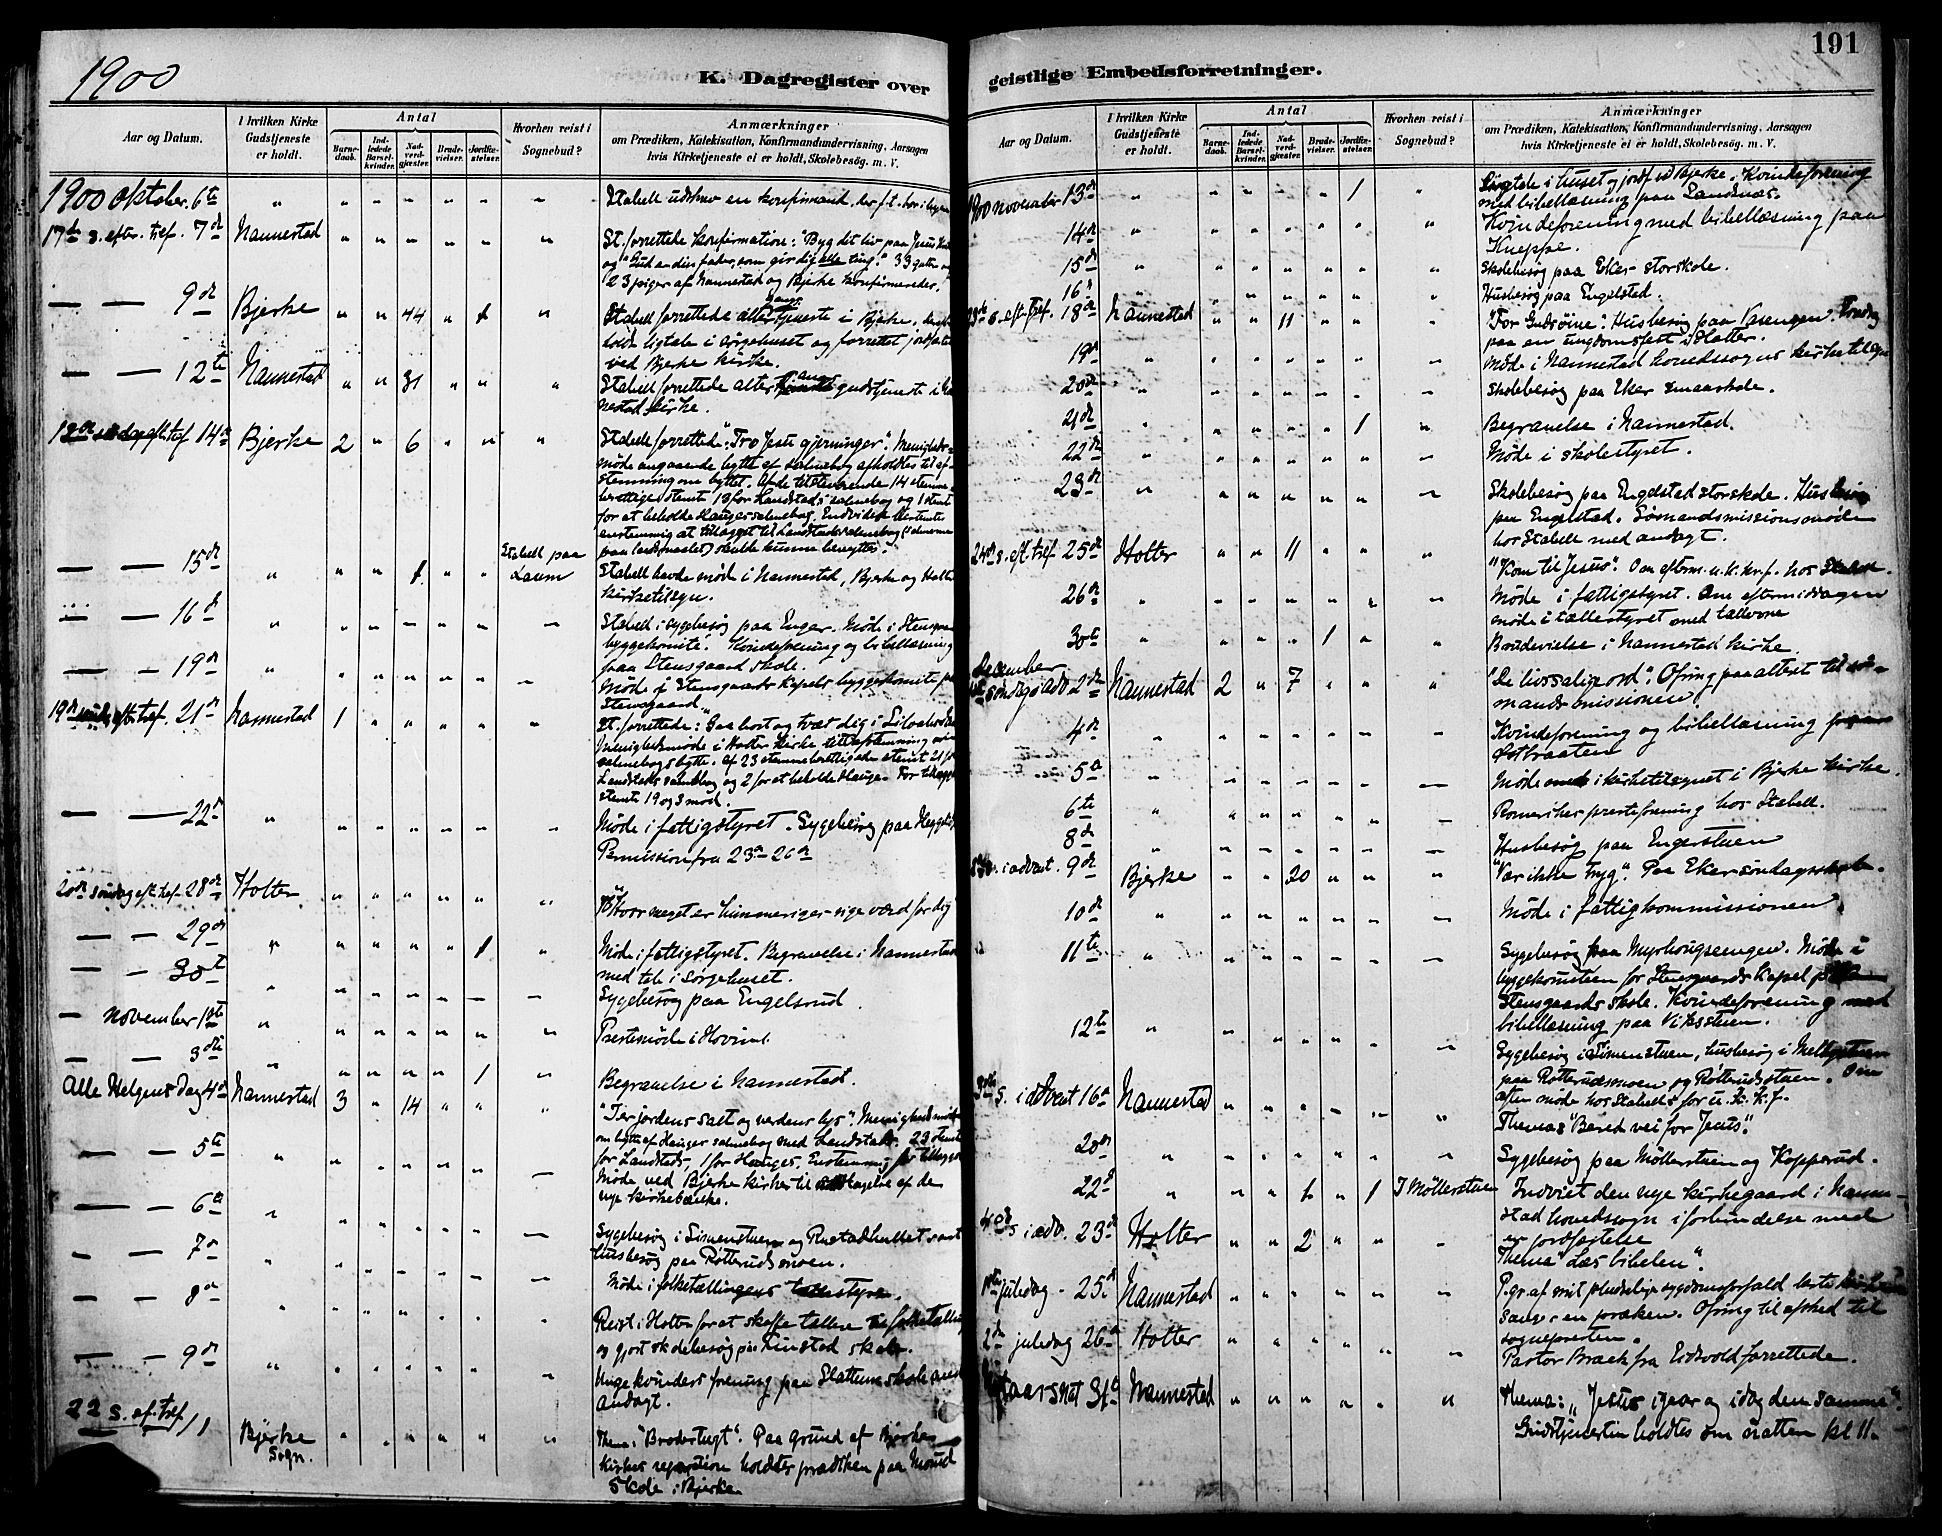 191
1900
K. Dagregister over geistlige Embedsforretninger.
Aar og Datum.
I hvilken Kirke Gudstjeneste er holdt.
Antal
Barne-daab.
Ind-ledede Barsel-kvinder.
Nad-verd-gjæster.
Brude-vielser.
Jordfæ-stelser.
Hvorhen reist i Sognebud?
Anmærkninger
om Prædiken, Katekisation, Konfirmandundervisning, Aarsagen
hvis Kirketjeneste ei er holdt, Skolebesög m. V.
1900 Oktober 6te " " " " " " " Stabell udskrev en konfirmand
17de s. efter tref. 7de Nannestad " " " " " " St. forrettede konfirmation: "Byg dit liv paa Jesus
og "Gud er din fader, som gir dig alle ting." 33 gutter og
23 piger af Nannestad og Bjerke konfirmeredes.
— — 9de Bjerke " " 44 " 1 " Stabell forrettede altergangstjeneste i Bjerke,
ligtale i sørgehuset og forrettet jordfæstelse
ved Bjerke kirke.
— — 12te Nannestad " " 31 " " " Stabell forrettede altergangsgudstjeneste i Nan-
nestad kirke.
18de søndag eft. tref. 14de Bjerke 2 " 6 " " " Stabell forrettede: "Tro Jesu gjerninger". Menigheds-
møde angaaende bytte af salmebog afholdtes til af-
stemning om byttet. Af de tilstedeværende 14 stemme-
berettigede stemte 13 for Landstads salmebog og 1 stemt
for at beholde Hauges salmebog. Endvidere stemtes
enstemmig at tillægget til Landstads salmebog (salmerne
paa landsmaalet) skulde kunne benyttes.
— — 15de " " " 1 " " Stabell paa Laum Stabell havde møde i Nannestad, Bjerke og Holter
kirketilsyn.
— 16de " " " " " " — Stabell i sygebesøg paa Enger. Møde i Stensgaard
byggekomite. Kvindeforening og bibellæsning
paa Stensgaard skole.
— — 19de " " " " " " " Møde i Stensgaards Kapels byggekomite paa
Stensgaard
19de s. eft. tref. 21de Nannestad 1 " " " " " St. forrettede: Gaa bort og tvæt dig i Siloa
Menighedsmøde i Holter kirke til afstemning om
salmebogsbytte. Af 23 stemmeberettigede stemte 21 for
Landstads salmebog og 2 for at beholde Hauges. For tillægget
stemte 19 og 3 mod.
— — 22de " " " " " " " Møde i fattigstyret. Sygebesøg paa
Permission fra 23de – 26de
20de søndag eft. tref. 28de Holter " " " " " " "Hvor meget er himmeriges rige værd for dig"
— — 29de " " " " " 1 " Møde i fattigstyret. Begravelse i Nannestad
med tale i sørgehuset.
— — 30te " " " " " — — Sygebesøg paa Engelsrud.
— November 1ste " " " " " " " Prestemøde i Hovind.
— — 3die " " " " " 1 " Begravelse i Nannestad.
Alle Helgens Dag 4de Nannestad 3 " 14 " " " "I er jordens salt og verdens lys". Menighedsmøde
om bytte af Hauges salmebog med Landstads. 23 stemte
for Landstads, 1 for Hauges. Enstemmig for tillægget
— — 5te " " " " " " — Møde ved Bjerke kirke til modtagelse af de
nye kirkebænke.
— — 6te " " " " " " — Sygebesøg i Simenstuen og Rustadhullet samt
husbesøg paa Rotterudsmoen.
— — 7de " " " " " " — Møde i folketællingens tællestyre.
— — 8de " " " " " " " Reist i Holter for at skaffe tællere til folketælling
og gjort skolebesøg paa skole.
— — 9de " " " " " " — Unge kvinders forening paa Slattum skole med
Andagt.
22 s. ef. tref. 11 Bjerke Sogn. " " " " " " Thema: "Brodertugt". Paa grund af Bjerke
kirkes reparation holdtes prædiken paa Morud
skole i Bjerke
1900 November 13de " " " " " 1 " Ligtale i huset og jordf. ved Bjerke. Kvindeforening
med bibellæsning paa Sandsnæs.
14de " " " " " " " Kvindeforening med bibellæsning paa
Kneppe.
15de " " " " " " " Skolebesøg paa Eker storskole.
16de " " " " " " " Husbesøg paa Engelstad.
23de s. eft. tref. 18de Nannestad " " 11 " " " "For Guds øine". Husbesøg paa Tilsengen. Foredrag
paa en ungdomsfest i Holter.
19de " " " " " " " Møde i Nannestad hovedsogns kirketilsyn
20de " " " " " " " Skolebesøg paa Eker smaaskole.
21de " " " " " 1 " Begravelse i Nannestad.
22de " " " " " " " Møde i skolestyret.
23de " " " " " " " Skolebesøg paa Engelstad storskole. Husbesøg
paa Engelstad. Sømandsmissionsmøde
hos Stabell med andagt.
24de s. eft. tref. 25de Holter " " 11 " " " "Kom til Jesus". Om efterm. u.k.kr.f. hos Stabell.
26de " " " " " " " Møde i fattigstyret. Om eftermiddagen
møde i tællestyret med tællerne
30te " " " " 1 " " Brudevielse i Nannestad kirke.
December
1ste søndag i adv. 2den Nannestad 2 " 7 " " " "De livsalige ord". Ofring paa alteret til sø-
mandsmissionen.
4de " " " " " " " Kvindeforening og bibellæsning paa
Østbraaten
5te " " " " " " " Møde med kirketilsynet i Bjerke kirke.
6te " " " " " " " Romerikes presteforening hos Stabell.
8de " " " " " " " Husbesøg paa Engerstuen
2den s. i advent. 9de Bjerke " " 20 " " " "Vær ikke tryg". Paa Eker søndagsskole.
10de " " " " " " " Møde i fattigkommissionen
11te " " " " " " " Sygebesøg paa Myrhougsengen. Møde i
byggekomiteen for Stensgaards kapel paa
Stensgaards skole. Kvindeforening med
bibellæsning paa Viksstuen.
12te " " " " " " " Sygebesøg i Simenstuen, husbesøg i
paa Rotterudsmoen og Rotterudstuen. Om
aften møde hos Stabell for u.k.k.f.
3die s. i advent 16de Nannestad " " " " " " Thema: "Bered vei for Jesus".
20de " " " " " " " Sygebesøg paa Møllerstuen og Kopperud.
22de " " " 1 " 1 I Møllerstuen Indviet den nye kirkegaard i Nanne-
stad hovedsogn i forbindelse med
en jordfæstelse
4de s i adv. 23de Holter " " 2 " " " Thema "Læs bibelen".
1ste juledag 25de Nannestad " " " " " " P.gr. af mit pludselige sygdomsforfald læste kirke-
sanger en præken. Ofring til afsked til
sognepresten.
2den juledag 26de Holter " " " " " " Pastor Bræk fra Eidsvold forrettede.
Nytaarsnat 31te Nannestad " " " " " " Thema: "Jesus igaar og idag den samme".
Gudstjenesten holdtes om natten kl 11.